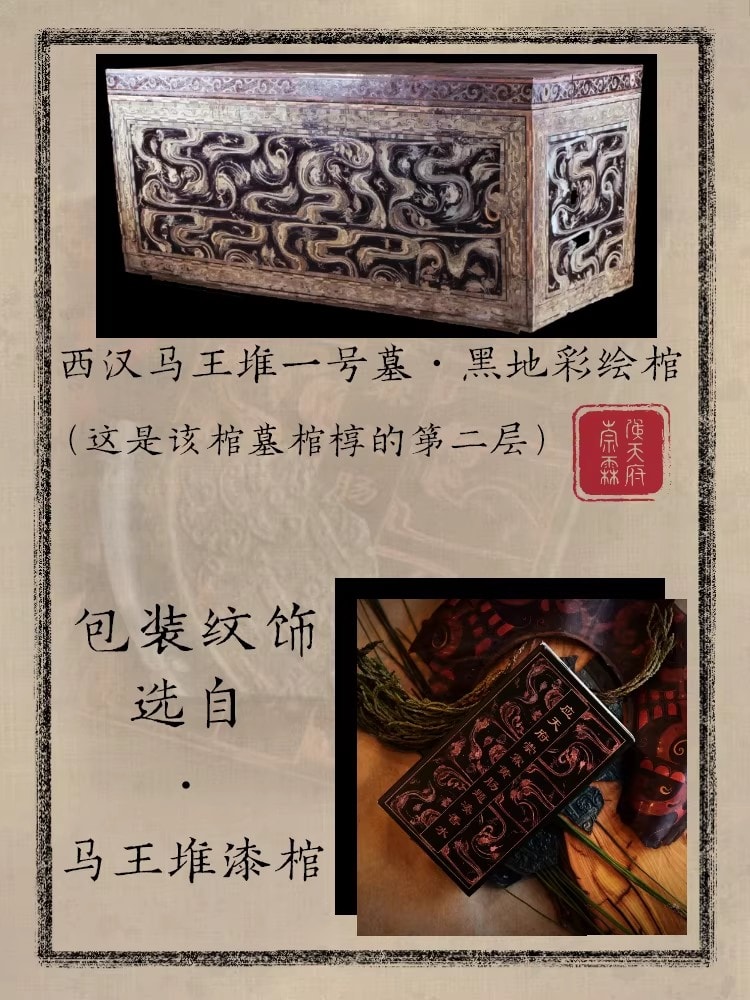 西汉马王堆一号墓·黑地彩绘棺
（这是该棺墓棺椁的第二层）
包装纹饰
选自
·
马王堆漆棺